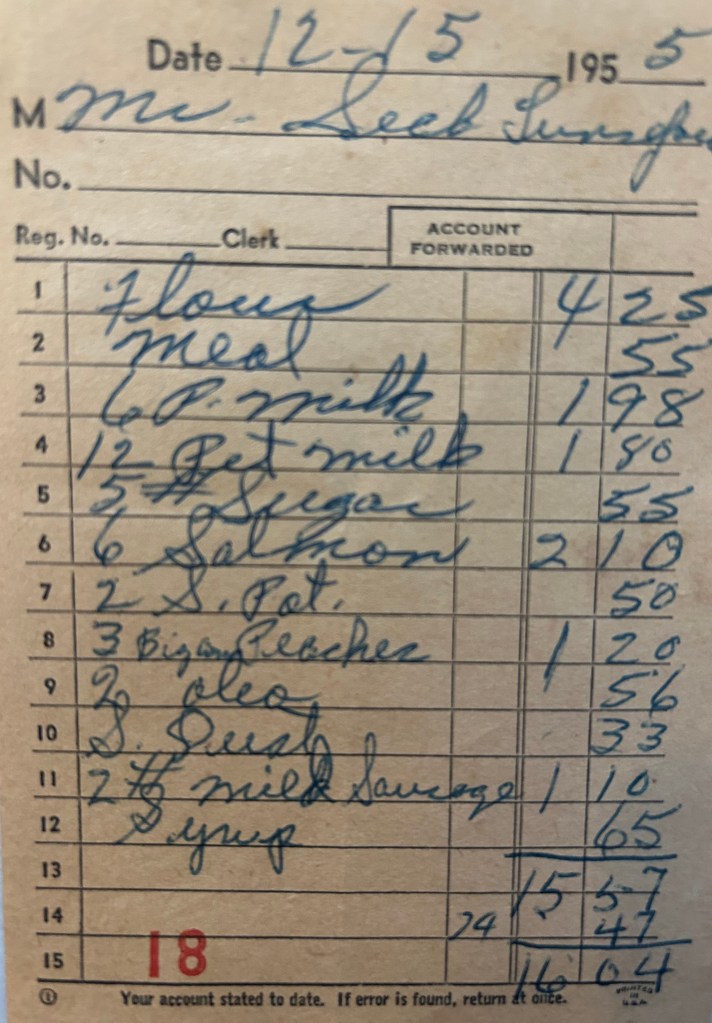 Date 12-15 1955
M Mr. Seeb
No.
Reg. No. Clerk ACCOUNT FORWARDED
1 Flour 4 25
2 Meal 55
3 6 P. Milk 1 98
4 12 Pet milk 1 80
5 5# Sugar 55
6 6 Salmon 2 10
7 2 S. Pot. 50
8 3 Big can Peaches 1 20
9 2 oleo 56
10 S. Dust 33
11 2# mild Sausage 1 10
12 Syrup 65
13 15 57
14 47
15 18 16 04
Your account stated to date. If error is found, return at once. PRINTED IN U.S.A.